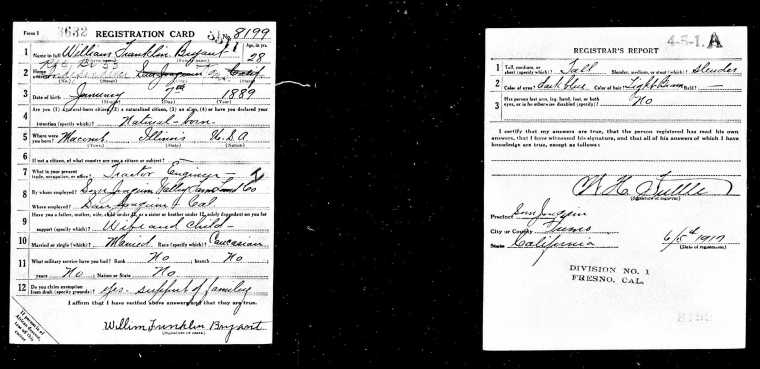 Form 1 3632 REGISTRATION CARD No. 8199
1 Name in full William Franklin Bryant Age, in yrs. 28
2 Home San Joaquin Calif.
3 Date of birth January 7th 1889
(Month) (Day) (Year)
4 Are you (1) a natural-born citizen, (2) a naturalized citizen, (3) an alien, (4) or have you declared your
intention (specify which)? Natural-born
5 Where were you born? Macomb Illinois U.S.A
(Town) (State) (Nation)
6 If not a citizen, of what country are you a citizen or subject?
7 What is your present trade, occupation, or office? Tractor Engineer
8 By whom employed? San Joaquin Valley Farm Land Co
Where employed? San Joaquin Cal
9 Have you a father, mother, wife, child under 12, or a sister or brother under 12, solely dependent on you for
support (specify which)? Wife and child
10 Married or single (which)? Married Race (specify which)? Caucasian
11 What military service have you had? Rank No ; branch No
years No ; Nation or State No
12 Do you claim exemption from draft (specify grounds)? yes. support of family
I affirm that I have verified above answers and that they are true.
William Franklin Bryant
If person is of African descent, tear off this corner
4-5-1. A
REGISTRAR'S REPORT
1 Tall, medium, or short (specify which)? Tall Slender, medium, or stout (which)? Slender
2 Color of eyes? Dark blue Color of hair? Light Brown Bald?
3 Has person lost arm, leg, hand, foot, or both eyes, or is he otherwise disabled (specify)? No
I certify that my answers are true, that the person registered has read his own
answers, that I have witnessed his signature, and that all of his answers of which I have
knowledge are true, except as follows:
W H Tuttle
(Signature of registrar)
Precinct San Joaquin
City or County Fresno
State California 6/5th 1917
(Date of registration)
DIVISION NO. 1
FRESNO, CAL.
8199